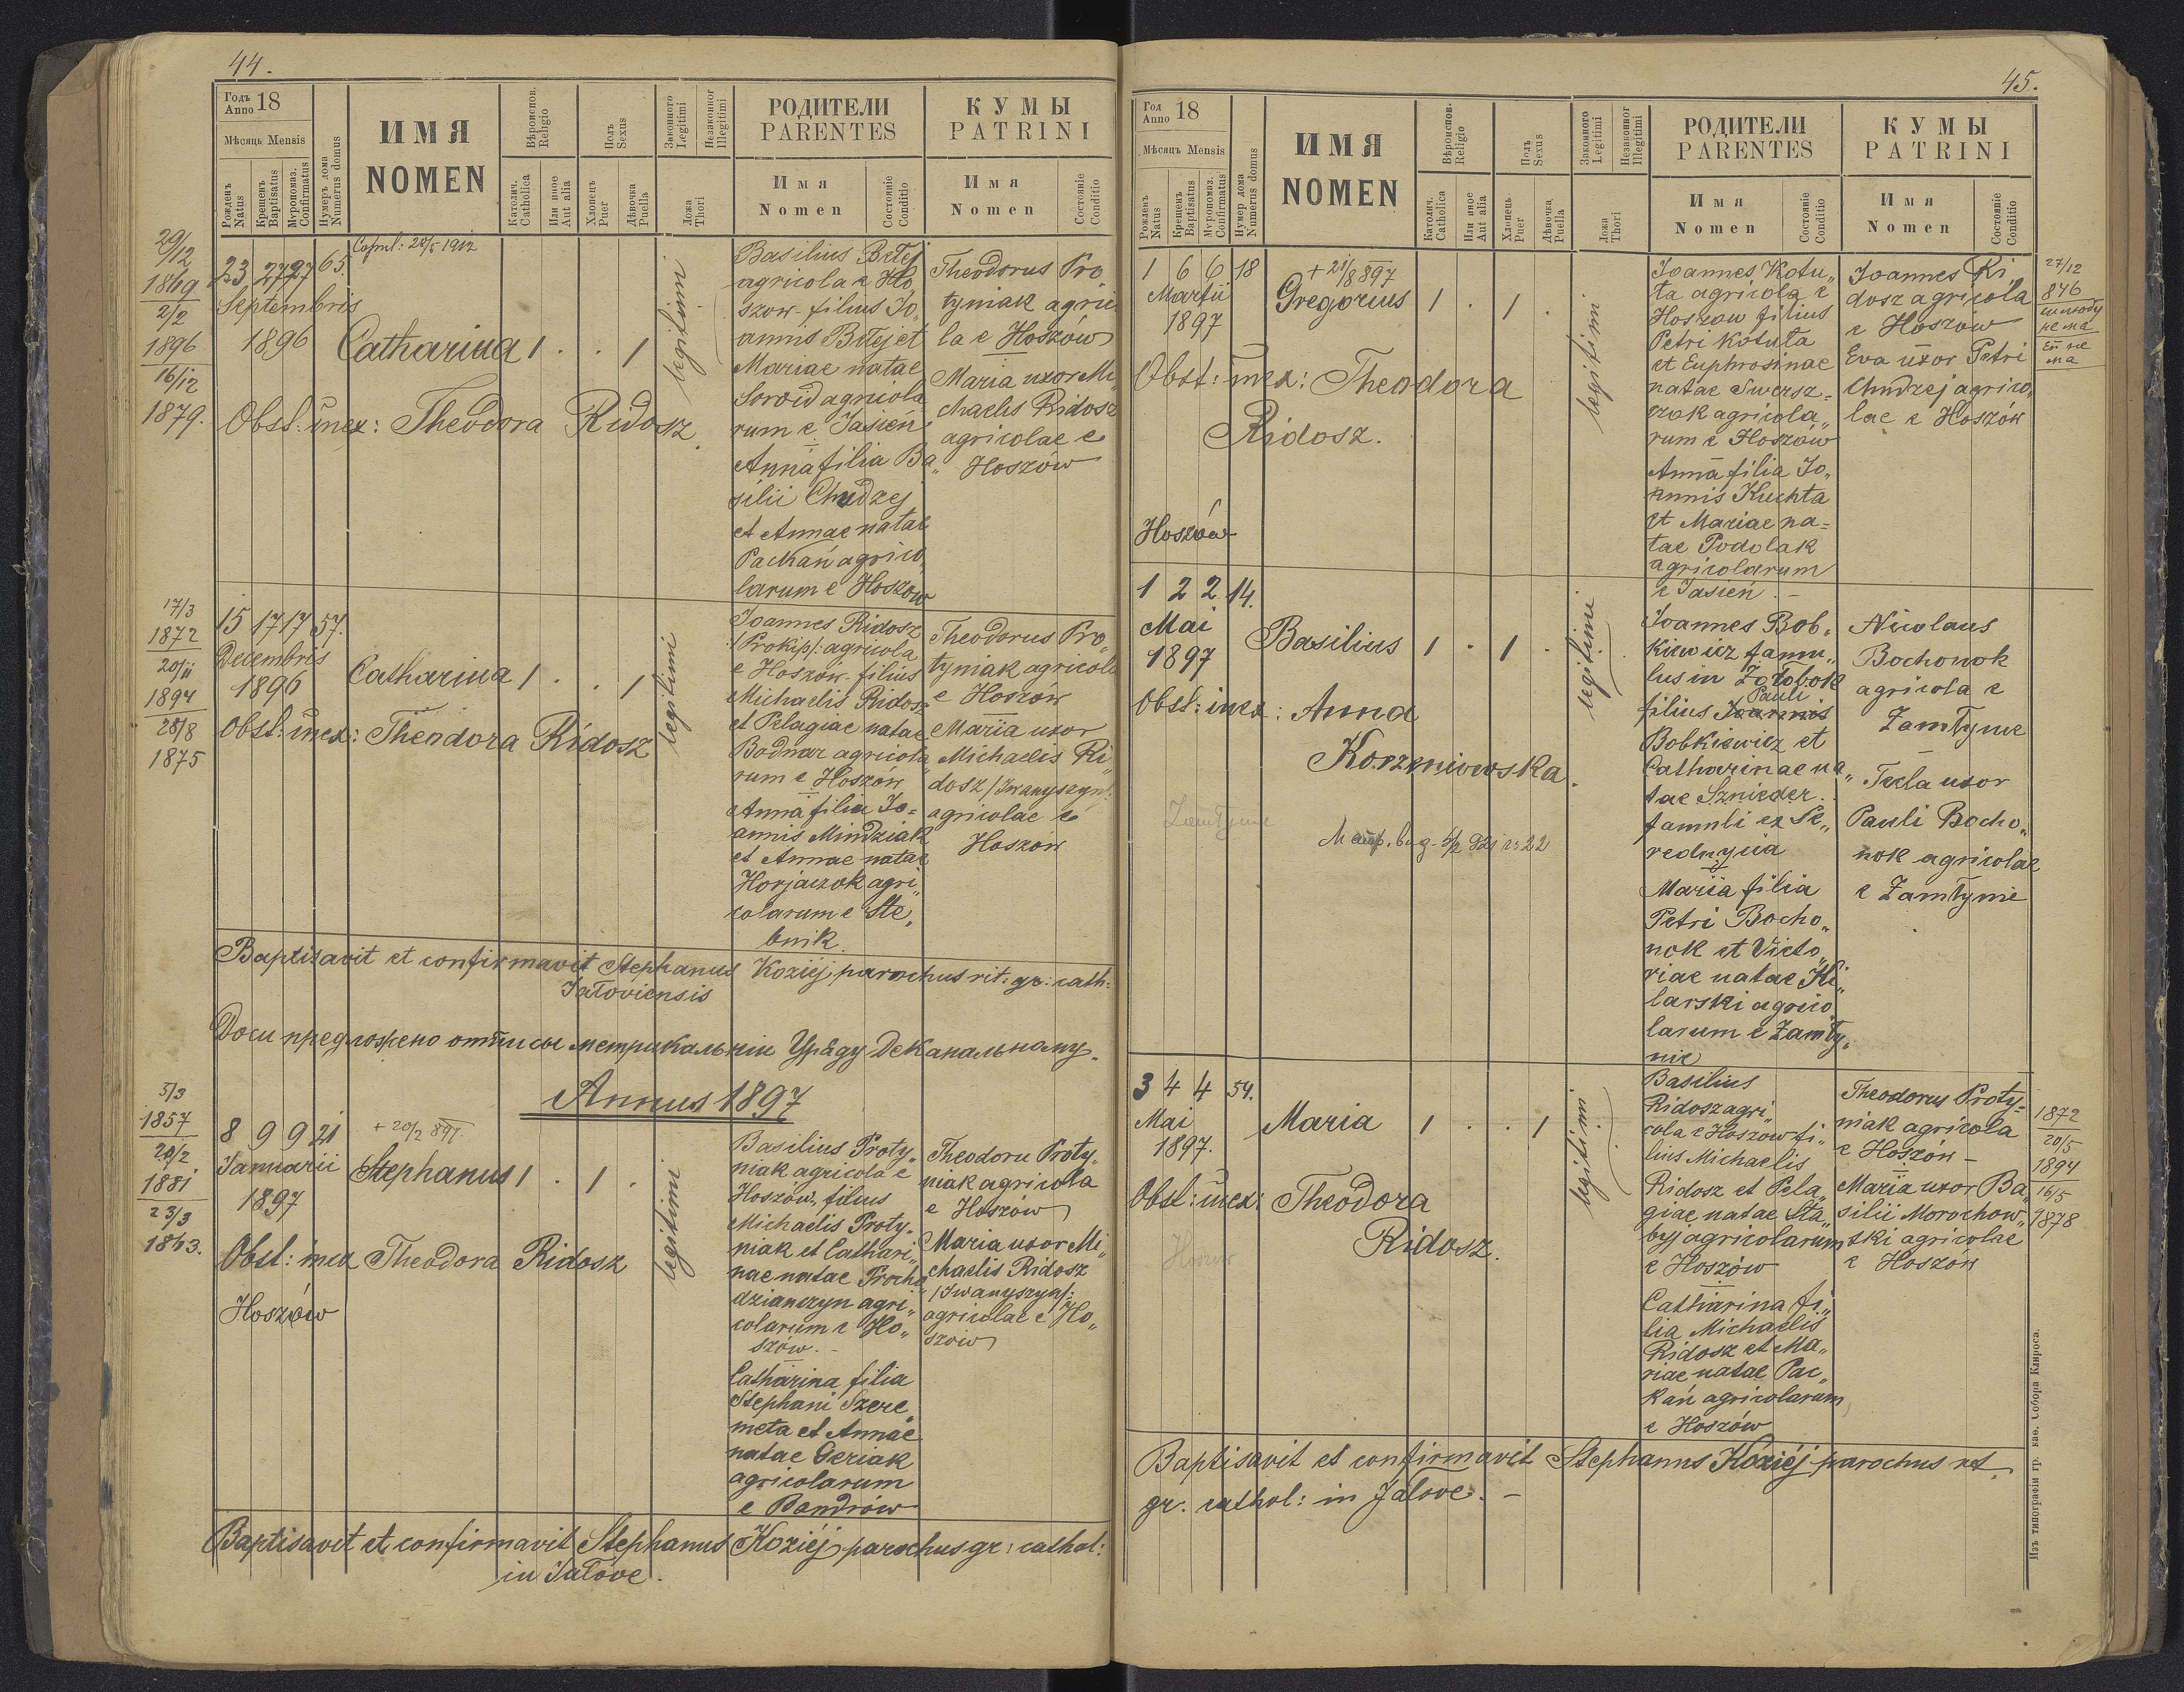 44.
Годъ
Anno 18
Мѣсяць Mensis
Рожденъ
Natus
Крещенъ
Baptisatus
Мѵропомаз.
Confirmatus
Нумеръ дома
Numerus domus
ИМЯ
NOMEN
Вѣроиспов.
Religio
Католич.
Catholica
Или иное
Aut alia
Полъ
Sexus
Хлопецъ
Puer
Дѣвочка
Puella
Законного
Legitimi
Незаконног
Illegitimi
Ложа
Thori
РОДИТЕЛИ
PARENTES
Имя
Nomen
Состояніе
Conditio
КУМЫ
PATRINI
Имя
Nomen
Состояніе
Conditio
29/12
1869
2/2
1896
16/12
1879.
23 27 27 65.
Septembris
1896
Copul: 28/5 1912
Catharina 1 . . 1
legitimi
Obst: inex: Theodora Ridosz.
Basilius Bitej
agricola e Ho
szow filius Jo„
annis Bitej et
Mariae natae
Sowid agricola
rum e Jasień
Anna filia Ba„
silii Chudzej
et Annae natae
Packań agrico„
larum e Hoszow
Theodorus Pro
tyniak agrico
la e Hoszów
Maria uxor Mi„
chaelis Ridosz
agricolae e
Hoszów
17/3
1872
20/11
1894
28/8
1875
15 17 17 57.
Decembris
1896
Catharina 1 . . 1
legitimi
Obst: inex: Theodora Ridosz
Joannes Ridosz
/:Prokip/: agricola
e Hoszów filius
Michaelis Ridosz
et Pelagiae natae
Bodnar agricola„
rum e Hoszów
Anna filia Jo=
annis Mindziak
et Annae natae
Horjaczok agri„
colarum e Ste„
bnik.
Theodorus Pro„
tyniak agricola
e Hoszów
Maria uxor
Michaelis Ri„
dosz /Iwanyszyn/:
agricolae e
Hoszów
Baptisavit et confirmavit Stephanus Koziéj parochus rit: gr: cath:
Jałoviensis
Доси предложено отписы метрикальніи Уряду Деканальному.
Annus 1897
5/3
1857
20/2
1881
23/3
1863.
8 9 9 21
Januarii
1897
+ 20/2 897.
Stephanus 1 . 1 .
legitimi
Obst: inex Theodora Ridosz
Hoszów
Basilius Proty„
niak agricola e
Hoszów, filius
Michaelis Proty„
niak et Cathari„
nae natae Procho„
dzianczyn agri„
colarum e Ho„
szów. -
Catharina filia
Stephani Szere„
meta et Annae
natae Geriak
agricolarum
e Bandrów
Theodoru Proty„
niak agricola
e Hoszów
Maria uxor Mi„
chaelis Ridosz
/Iwanyszyn/:
agricolae e Ho„
szów
Baptisavit et confirmavit Stephanus Koziéj parochus gr: cathol:
in Jałove.
45.
Год
Anno 18
Мѣсяцъ Mensis
Рожденъ
Natus
Крещенъ
Baptisatus
Мѵропомаз.
Confirmatus
Нумер дома
Numerus domus
ИМЯ
NOMEN
Вѣроиспов.
Religio
Католич.
Catholica
Или иное
Aut alia
Полъ
Sexus
Хлопець
Puer
Дѣвочка
Puella
Законного
Legitimi
Незаконног
Illegitimi
Ложа
Thori
РОДИТЕЛИ
PARENTES
Имя
Nomen
Состояніе
Conditio
КУМЫ
PATRINI
Имя
Nomen
Состояніе
Conditio
1 6 6 18
Martii
1897
+ 21/8 897
Gregorius 1 . 1 .
legitimi
Obst: inex: Theodora
Ridosz.
Hoszów
Joannes Kotu„
ta agricola e
Hoszow filius
Petri Kotuta
et Euphrosinae
natae Swersz=
czok agricola„
rum e Hoszów
Anna filia Jo„
annis Kuchta
et Mariae na=
tae Podolak
agricolarum
e Jasień. -
Joannes Ri
dosz agricola
e Hoszów
Eva uxor Petri
Chudzej agrico„
lae e Hoszów
27/12
846
шлюбу
не ма
Ей не
ма
1 2 2 14.
Mai
1897
Basilius 1 . 1 .
legitimi
Obst: inex: Anna
Korzeniowska.
Zamłynie
Joannes Bob„
kiewicz famu„
lus in Żołobok
Pauli
filius Joannis
Bobkiewicz et
Catharinae na„
tae Sznieder
famuli ex Se„
rednycia
Maria filia
Petri Bocho„
nok et Victo„
riae natae Ki„
larski agrico
larum e Zamły„
nie
Nicolaus
Bochonok
agricola e
Zamłynie
Tecla uxor
Pauli Bocho„
nok agricolae
e Zamłynie
3 4 4 54.
Mai
1897.
Maria 1 . . 1
legitimi
Obst: inex: Theodora
Ridosz.
Hoszów
Basilius
Ridosz agri„
cola e Hoszów fi„
lius Michaelis
Ridosz et Pela„
giae natae Sta„
byj agricolarum
e Hoszów
Catharina fi„
lia Michaelis
Ridosz et Ma„
riae natae Pac„
kań agricolarum
e Hoszów
Theodorus Proty=
niak agricola
e Hoszów -
Maria uxor Ba„
silii Morochow„
ski agricolae
e Hoszów
1872
20/5
1894
16/5
1878
Baptisavit et confirmavit Stephanus Koziéj parochus rit.
gr. cathol: in Jałove. -
Изъ типографіи гр. каѳ. Собора Клироса.